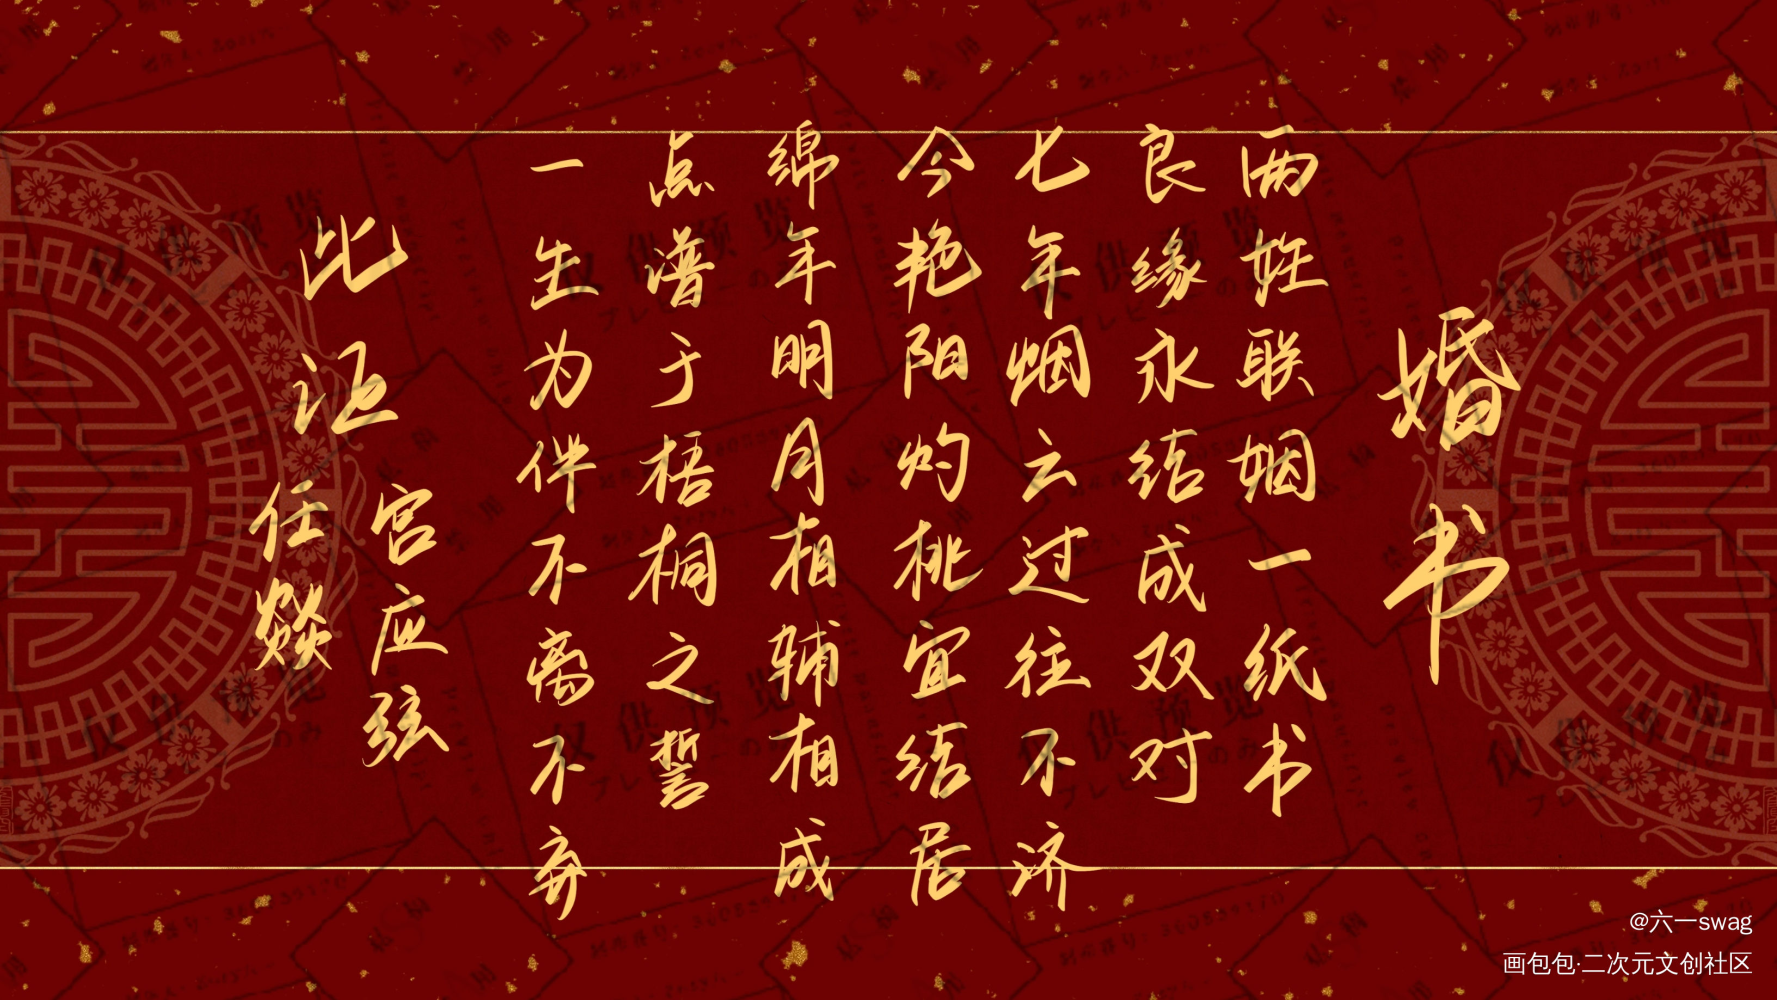 婚书
两姓联姻一纸书
良缘永结成双对
七年烟云过往不济
今艳阳灼桃宜结居
绵年明月相辅相成
点谱于梧桐之誓
一生为伴不离不弃
此证
宫应弦
任燚
@六一swag
画包包·二次元文创社区